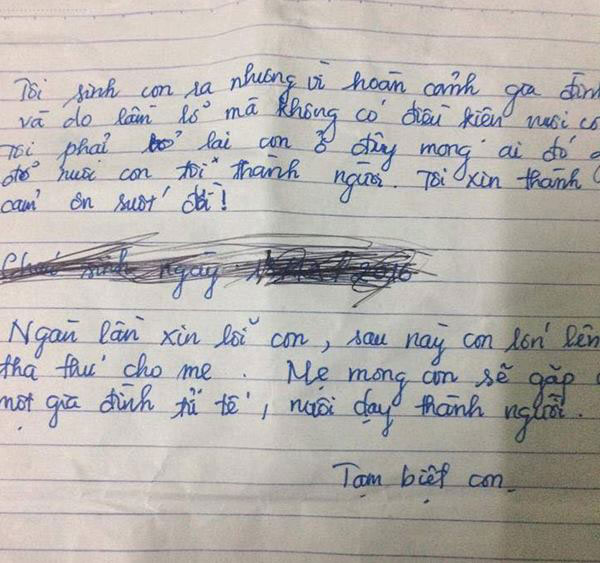 Tôi sinh con ra nhưng vì hoàn cảnh gia đình
và do lầm lỗ mà không có điều kiện nuôi co
Tôi phải bỏ lại con ở đây mong ai đó
đỡ nuôi con tôi thành người. Tôi xin thành
cảm ơn suốt đời!
Cháu sinh ngày 2016
Ngàn lần xin lỗi con, sau này con lớn lên
tha thứ cho mẹ. Mẹ mong con sẽ gặp
một gia đình tử tế, nuôi dạy thành người.
Tạm biệt con.